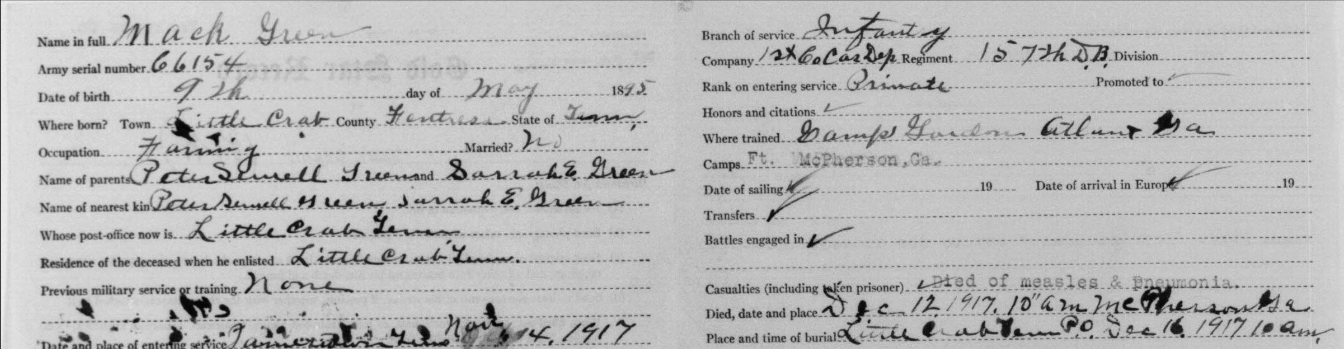 Name in full Mack Green
Army serial number 66154
Date of birth 9th day of May 1895
Where born? Town Little Crab County Fentress State of Tenn,
Occupation Farming Married? No
Name of parents Peter Sewell Green and Sarrah E. Green
Name of nearest kin Peter Sewell Green Sarrah E, Green
Whose post-office now is Little Crab Tenn
Residence of the deceased when he enlisted Little Crab Tenn.
Previous military service or training None
Date and place of entering service Jamestown Tenn Nov 4, 1917
Branch of service Infanty
Company 1st Co Cas Dep Regiment 157th D.B. Division
Rank on entering service Private Promoted to
Honors and citations
Where trained Camp Gordon Atlant Ga
Camps Ft. McPherson, Ga.
Date of sailing 19 Date of arrival in Europe 19
Transfers
Battles engaged in
Casualties (including taken prisoner) Died of measles & Pneumonia.
Died, date and place Dec 12 1917, 10" am McPherson Ga
Place and time of burial Little Crab Tenn P.O. Dec 16, 1917 10 am,